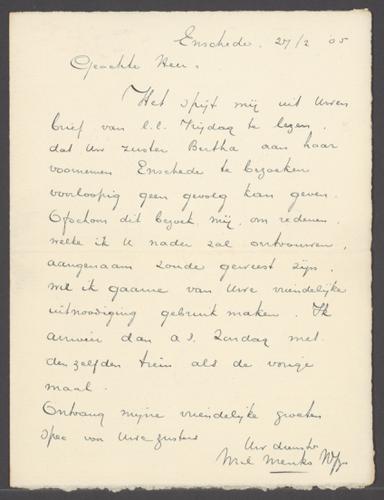 Enschede. 27/2 '05
Geachte Heer.
Het spijt mij uit Uwen
brief van l.l. Vrijdag te lezen,
dat Uw zuster Bertha aan haar
voornemen Enschede te bezoeken
voorloopig geen gevolg kan geven.
Ofschoon dit bezoek mij, om redenen,
welke ik U nader zal ontvouwen,
aangenaam zoude geweest zijn,
wil ik gaarne van Uwe vriendelijke
uitnoodiging gebruik maken. Ik
arriveer dan a.s. Zondag met
denzelfden trein als de vorige
maal.
Ontvang mijne vriendelijke groeten
spec voor Uwe zusters
Uw dienstw
Menko